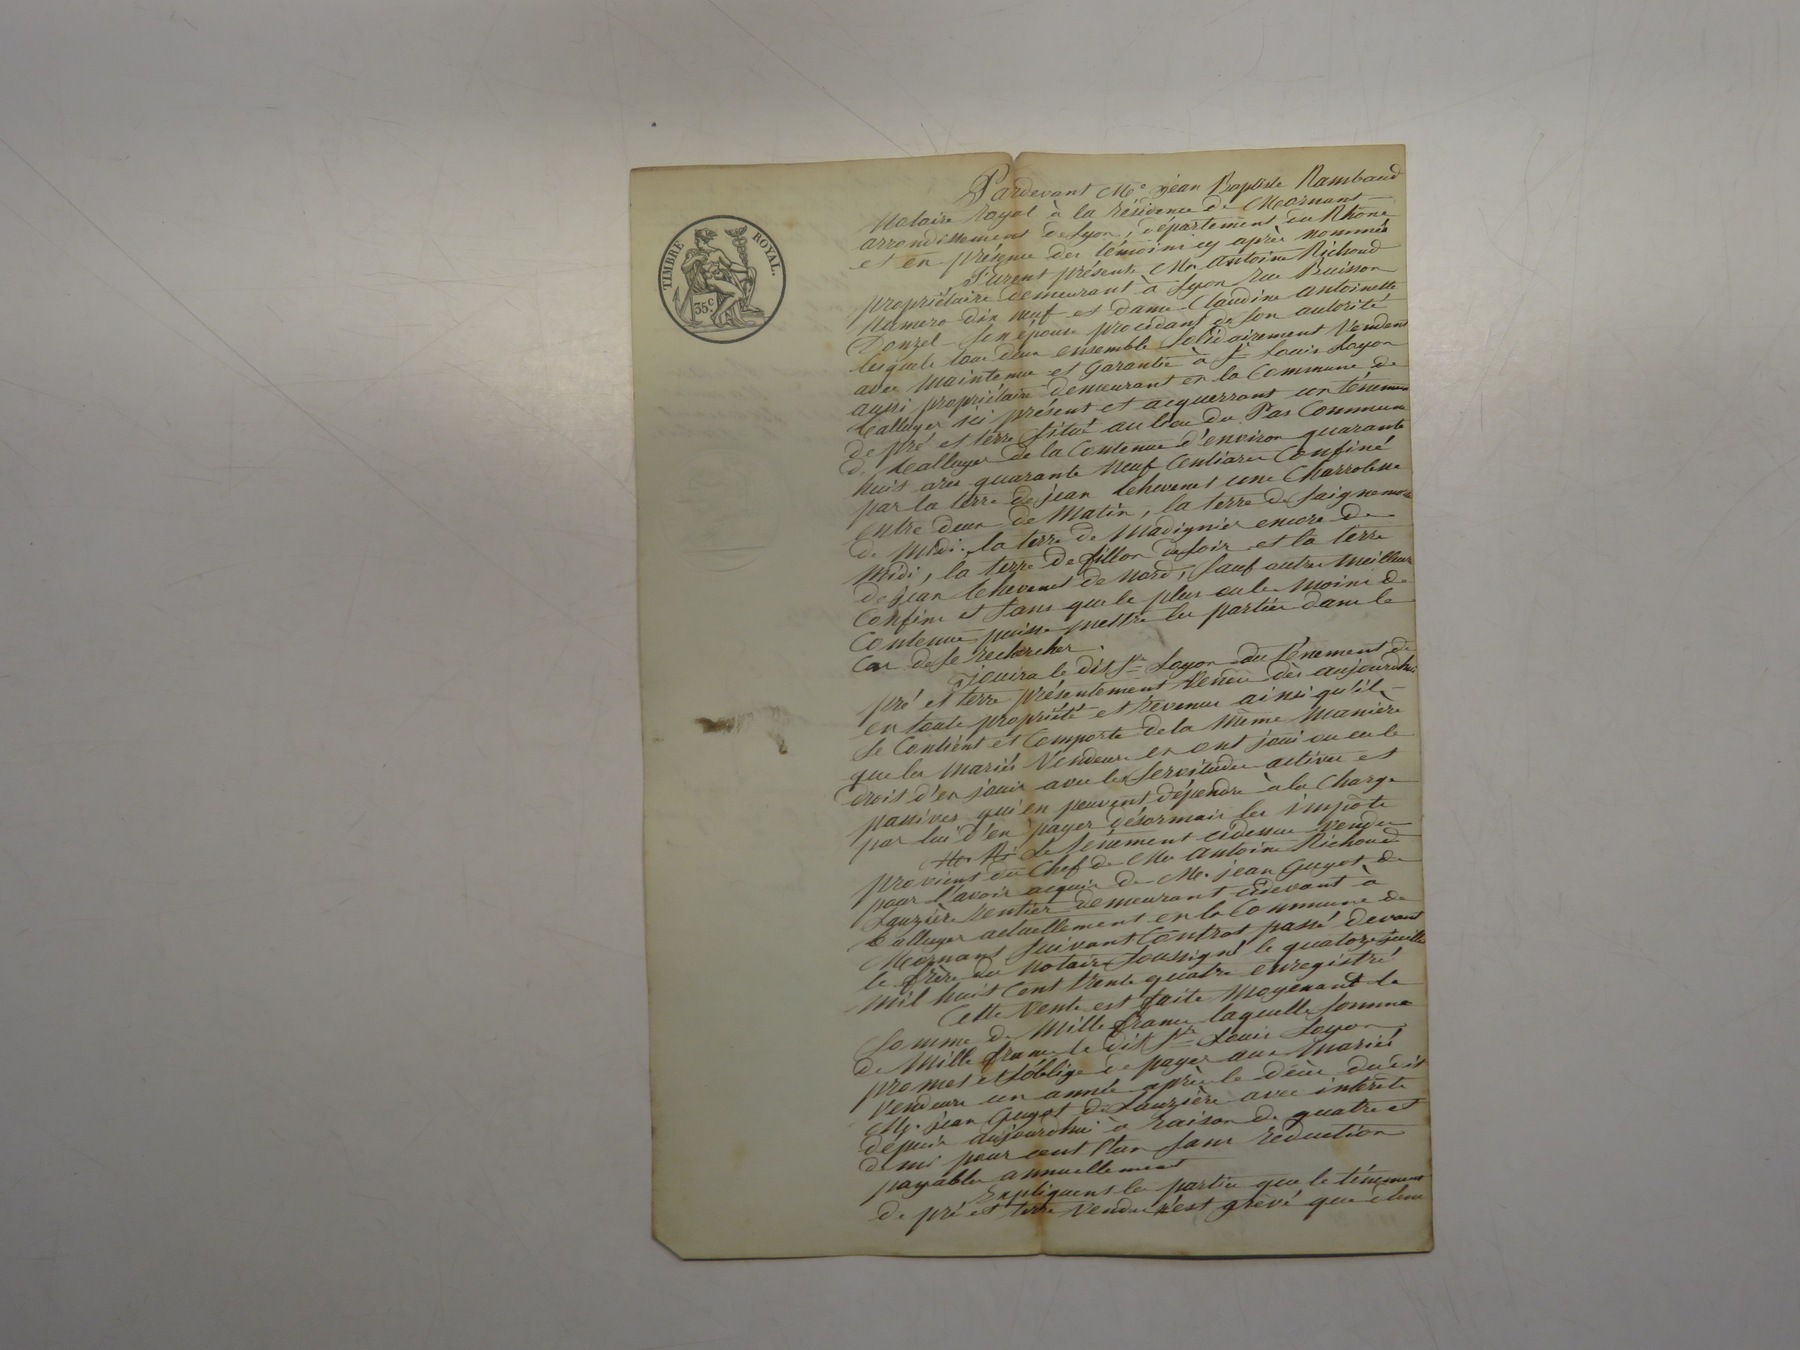 TIMBRE ROYAL.
35c
Pardevant Me jean Baptiste Rambaud
Notaire royal à la résidence de Mornant
arrondissement de Lyon, département du Rhône
et en présence des témoins cy après nommés
Furent présents Mr Antoine Richoud
propriétaire demeurant à Lyon rue Buisson
Numero dix neuf et dame Claudine Antoinette
Donzel son épouse procedant de son autorité
lesquels tous deux ensemble solidairement Vendent
avec Maintenue et Garantie à Sr Louis Loyon
aussi propriétaire demeurant en la Commune de
ici présent et acquerrant un ténement
de pré et terre situé au lieu du Pas Commune
de de la Contenue d'environ quarante
huit ares quarante Neuf Centiares Confiné
par la terre de jean une Charrobene
entre deux de Matin, la terre de
de Midi, la terre de Madignier encore de
Midi, la terre de fillon de soir et la terre
de jean de Nord, sauf autres meilleurs
Confins et sans que le plus ou le moins de
Contenue puisse mettre les parties dans le
Cas de se rechercher.
jouira le dit Sr Loyon du Ténement de
pré et terre présentement Vendu dès aujourdhui
en toute propriété et revenus ainsi qu'il
se Contient et Comporte de la Même Manière
que les Mariés Vendeurs en ont joui ou eu le
droit d'en jouir avec les servitudes actives et
passives qui en peuvent dépendre à la Charge
par lui d'en payer désormais les impôts
Le ténement cidessus vendu
provient du Chef de Mr Antoine Richoud
pour l'avoir acquis de Mr. jean Guyot de
Lauzière rentier demeurant cidevant à
actuellement en la Commune de
Mornant suivant Contrat passé devant
le frère du Notaire soussigné le quatorze juillet
Mil huit Cent trente quatre enregistré
Cette Vente est faite Moyenant la
somme de Mille francs laquelle somme
de Mille francs le dit Sr Louis Loyon
promet et s'oblige de payer aux Mariés
Vendeurs un année après le décès du dit
Mr. jean Guyot de Lauzière avec intérêts
depuis aujourdhui à raison de quatre et
demi pour cent l'an sans réduction
payables annuellement
Expliquent les parties que le ténement
de pré et terre Vendu n'est grevé que